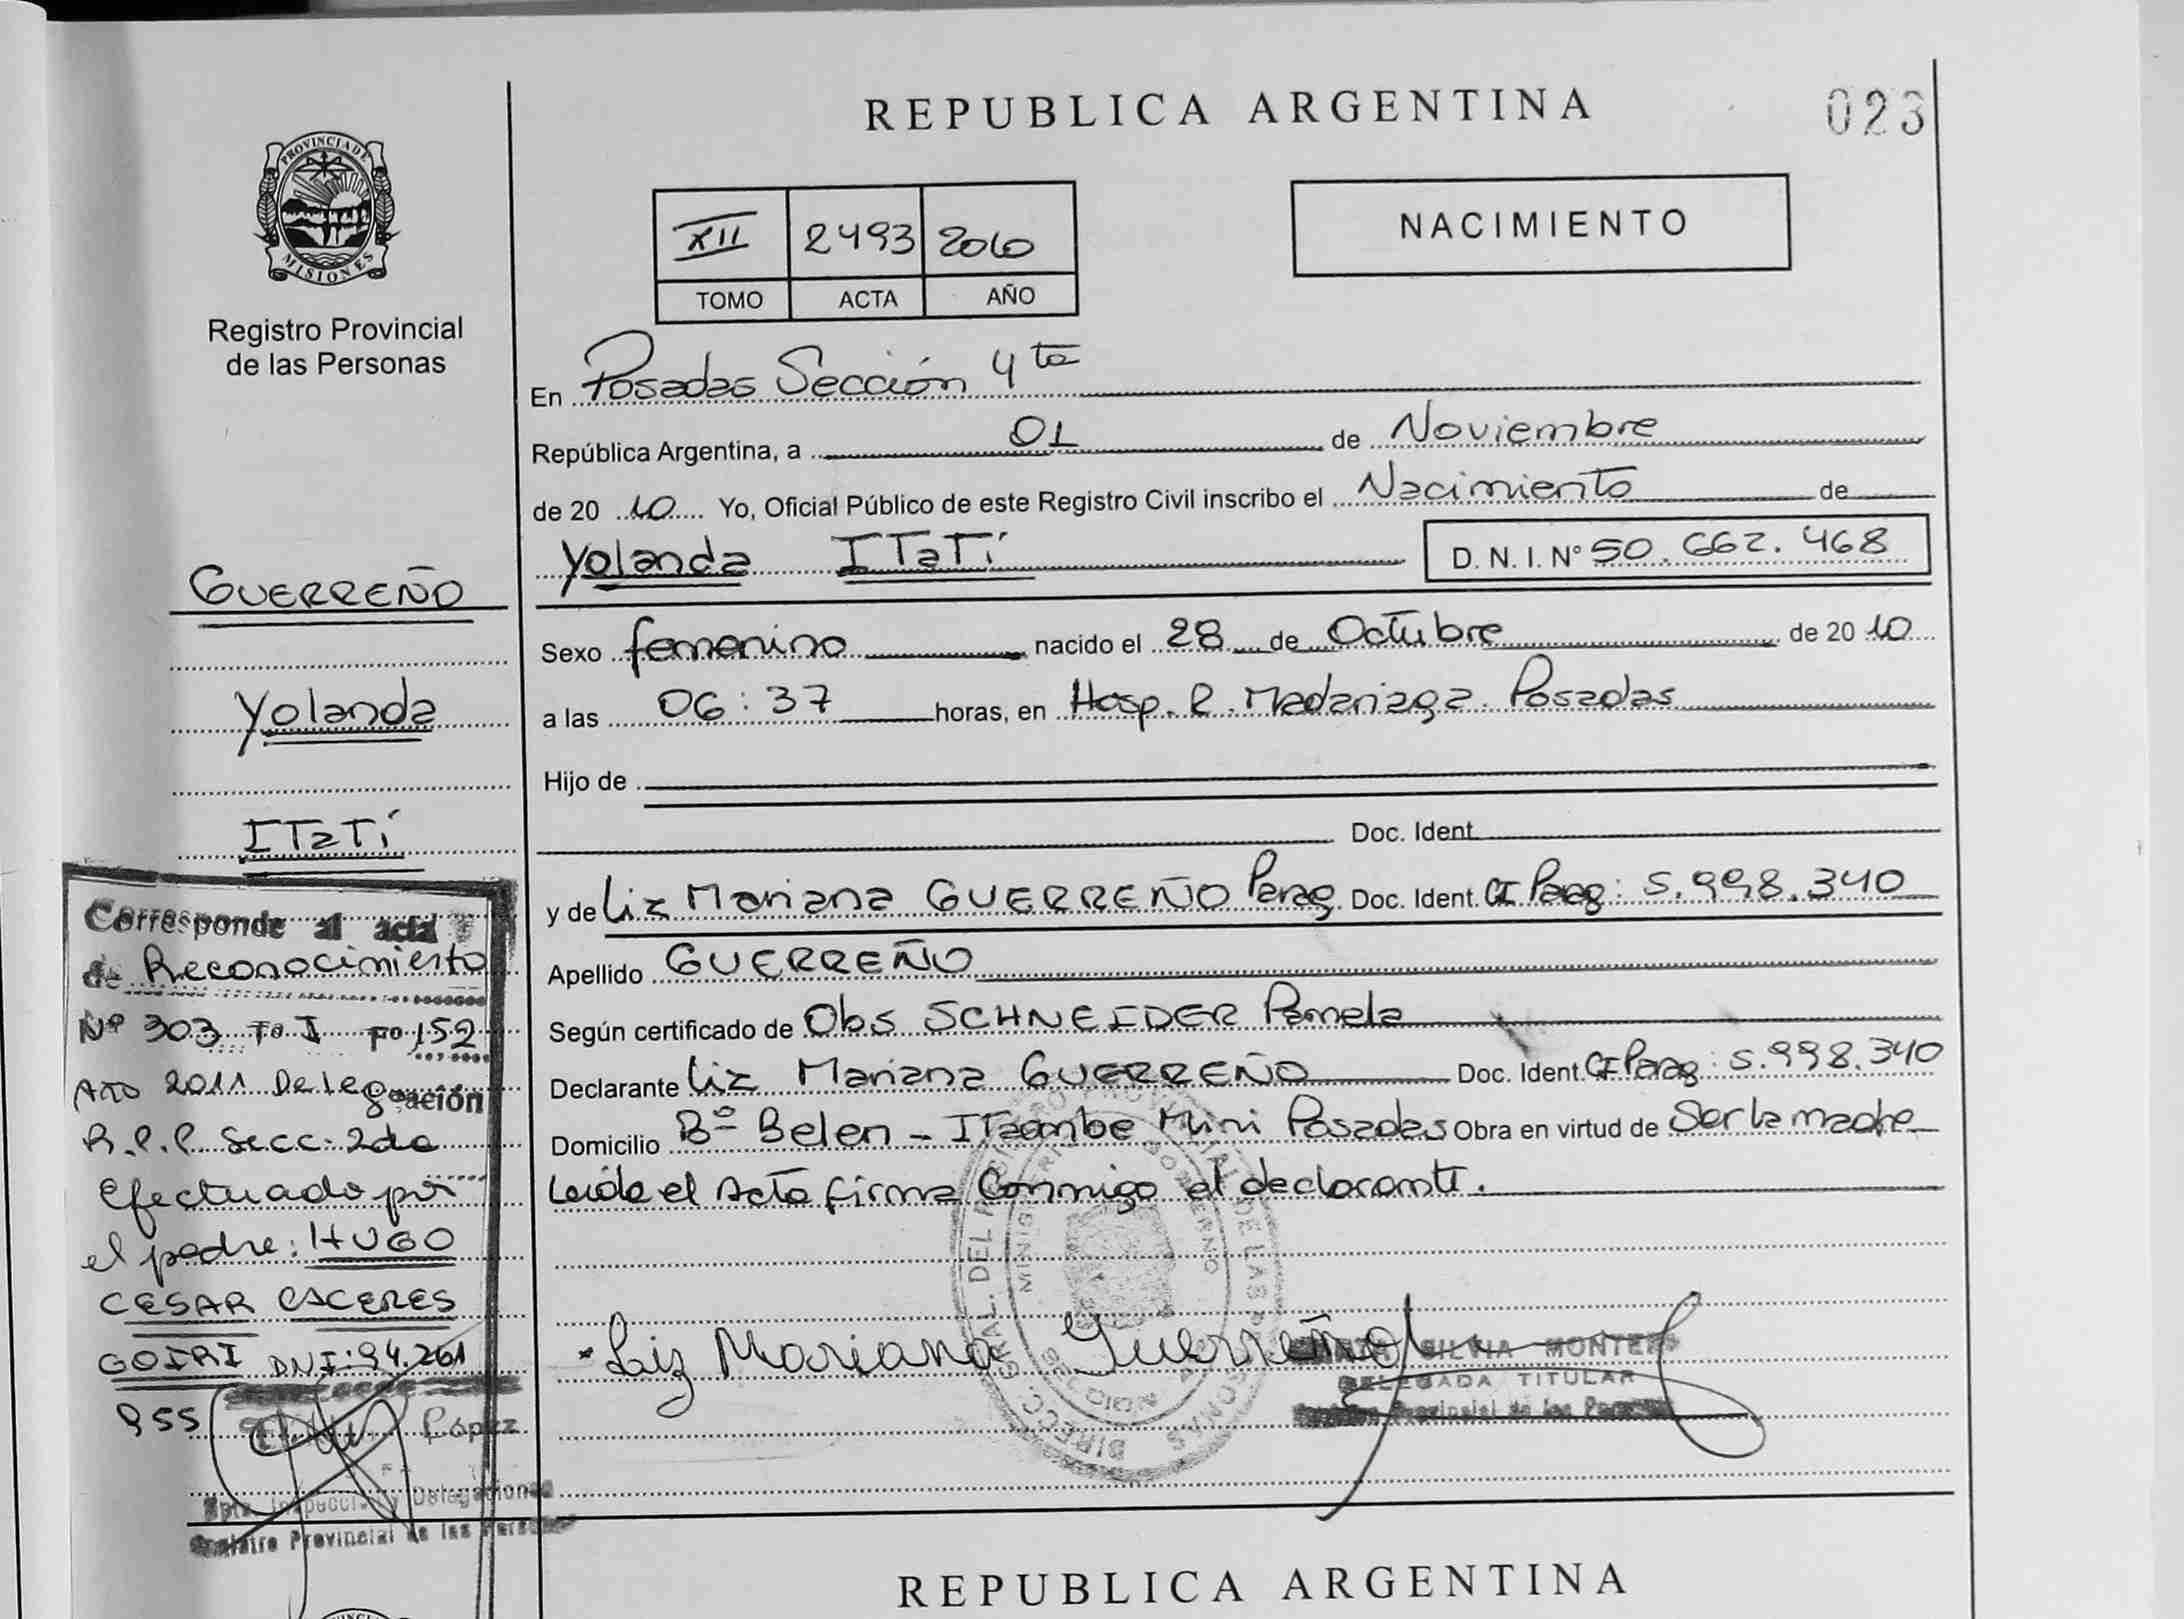 REPUBLICA ARGENTINA
023
PROVINCIA DE
MISIONES
Registro Provincial
de las Personas
XII 2493 2010
TOMO ACTA AÑO
NACIMIENTO
En Posadas Sección 4ta
República Argentina, a 01 de Noviembre
de 20 10 Yo, Oficial Público de este Registro Civil inscribo el Nacimiento de
Yolanda ITaTí D. N. I. N° 50.662.468
Sexo femenino nacido el 28 de Octubre de 20 10
a las 06:37 horas, en Hosp. R. Madariaga. Posadas
Hijo de
Doc. Ident.
y de Liz Mariana GUERREÑO Parag. Doc. Ident. CI Parag: 5.998.340
Apellido GUERREÑO
Según certificado de Obs SCHNEIDER Pamela
Declarante Liz Mariana GUERREÑO Doc. Ident. CI Parag: 5.998.340
Domicilio Bº Belen - ITaembe Mini Posadas Obra en virtud de Ser la madre
Leída el Acta firma Conmigo el declarante.
Liz Mariana Guerreño
SILVIA MONTE
DELEGADA TITULAR
Provincial de las
GUERREÑO
Yolanda
ITaTí
Corresponde al acta
de Reconocimiento
Nº 303 Tº I Fº 152
Año 2011 Delegación
R.P.P. Secc: 2da
Efectuado por
el padre: HUGO
CESAR CACERES
GOIRI DNI: 94.261
955
López
Dpto. Inspección y Delegaciones
Registro Provincial de las Personas
REPUBLICA ARGENTINA